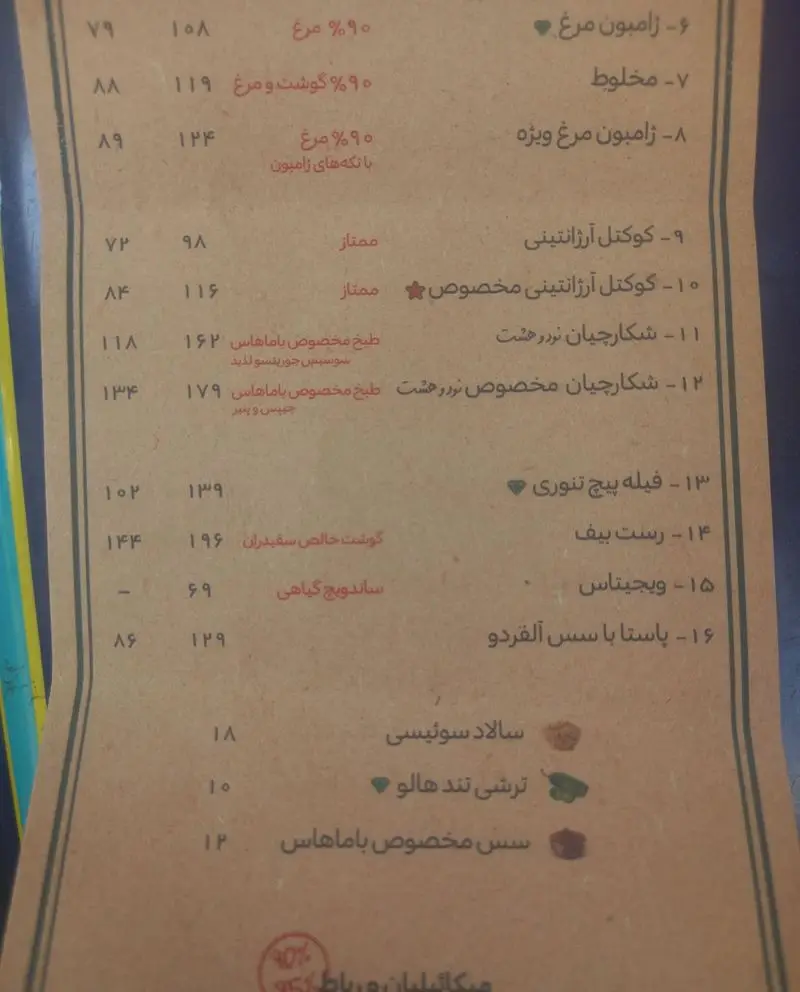 ۶- ژامبون مرغ ۹۰% مرغ ۱۰۸ ۷۹
۷- مخلوط ۹۰% گوشت و مرغ ۱۱۹ ۸۸
۸- ژامبون مرغ ویژه ۹۰% مرغ ۱۲۴ ۸۹
با تکه‌های ژامبون
۹- کوکتل آرژانتینی ممتاز ۹۸ ۷۲
۱۰- کوکتل آرژانتینی مخصوص ممتاز ۱۱۶ ۸۴
۱۱- شکارچیان نرد و هشت طبخ مخصوص باماهاس ۱۶۲ ۱۱۸
سوسیس چوریتسو لذیذ
۱۲- شکارچیان مخصوص نرد و هشت طبخ مخصوص باماهاس ۱۷۹ ۱۳۴
چیپس و پنیر
۱۳- فیله پیچ تنوری ۱۳۹ ۱۰۲
۱۴- رست بیف گوشت خالص سفیدران ۱۹۶ ۱۴۴
۱۵- ویجیتاس ساندویچ گیاهی ۶۹ -
۱۶- پاستا با سس آلفردو ۱۲۹ ۸۶
سالاد سوئیسی ۱۸
ترشی تند هالو ۱۰
سس مخصوص باماهاس ۱۲
میکائیلیان و رباط